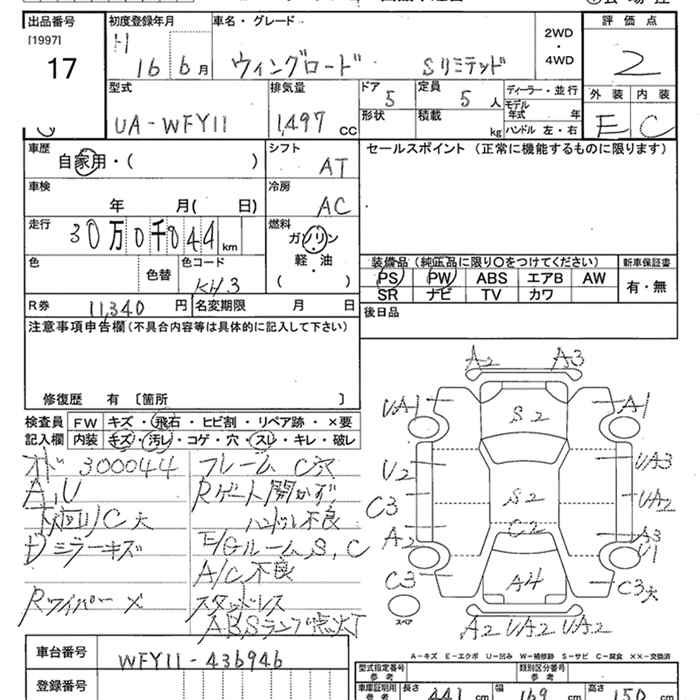 出品番号
[1997]
17
初度登録年月
H
16 6月
車名・グレード
ウィングロード Sリミテッド
2WD
・
4WD
評価点
2
外装 内装
E C
型式
UA-WFY11
排気量
1,497 CC
ドア
5
定員
5 人
形状
積載
kg
ディーラー・並行
モデル
年式 年
ハンドル 左・右
車歴
自家用・( )
シフト
AT
セールスポイント (正常に機能するものに限ります)
車検
年 月( 日)
冷房
AC
走行
30万0千044 km
燃料
ガソリン
・
軽・油
( )
色
色替
色コード
KH3
装備品 (純正品に限り○をつけてください)
新車保証書
PS PW ABS エアB AW
SR ナビ TV カワ
有・無
R券
11,340 円
名変期限 月 日
後日品
注意事項申告欄 (不具合内容等は具体的に記入して下さい)
修復歴 有 〔箇所 〕
検査員
記入欄
FW キズ・飛石・ヒビ割・リペア跡・×要
内装 キズ・汚レ・コゲ・穴・スレ・キレ・破レ
オド 300044
A,U
下回りC大
ドミラーキズ
Rワイパー×
フレームC穴
Rゲート開かず,
ハンドル不良
E/Gルーム,S,C
A/C不良
スタッドレス
ABSランプ点灯
A2 A3
UA1 A1
S2
U2 UA3
C3 S2 UA2
A2 C2 A3
U1
C3 A4 C3大
スペア
A2 UA2 UA2
A-キズ E-エクボ U-凹み W-補修跡 S-サビ C-腐食 XX-交換済
車台番号
WFY11-436946
登録番号
型式指定番号
参考
類別区分番号
参考
車庫証明用
参考
長さ 441 cm
幅 169 cm
高さ 150 cm